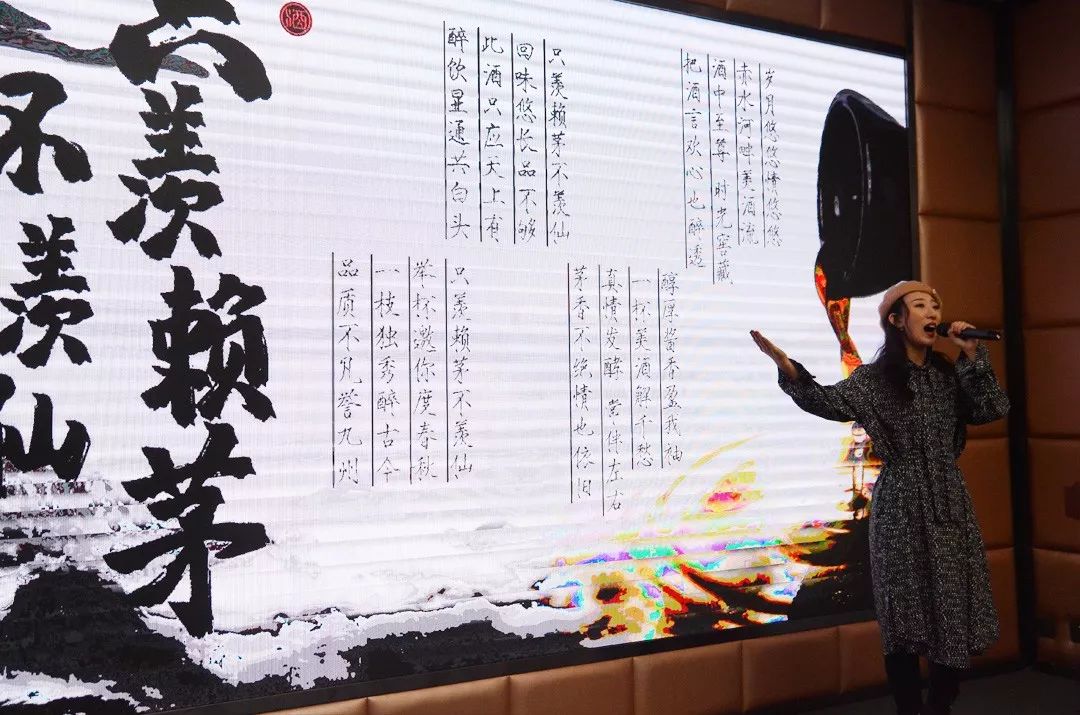 酒
只羡赖茅
不羡仙
岁月悠悠情悠悠
赤水河畔美酒流
酒中至尊 时光窖藏
把酒言欢心也醉透
醇厚酱香盈我袖
一杯美酒解千愁
真情发酵 常伴左右
茅香不绝情也依旧
只羡赖茅不羡仙
回味悠长品不够
此酒只应天上有
醉饮通共白头
只羡赖茅不羡仙
举杯邀你度春秋
一枝独秀醉古今
品质不凡誉九州